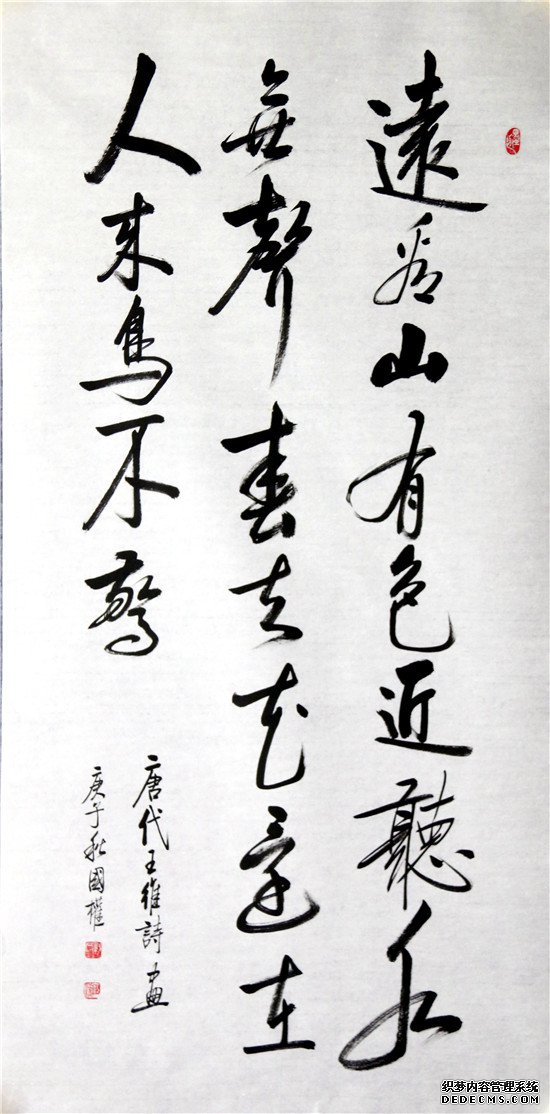 遠看山有色近聽水
無聲春去花還在
人來鳥不驚
唐代王維詩畫
庚子秋國權
织梦内容管理系统
DEDECMS.COM